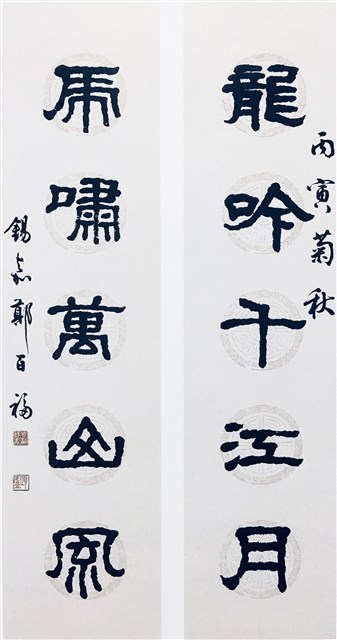 丙寅菊秋
龍吟千江月
虎嘯萬山風
錫嘉鄭百福